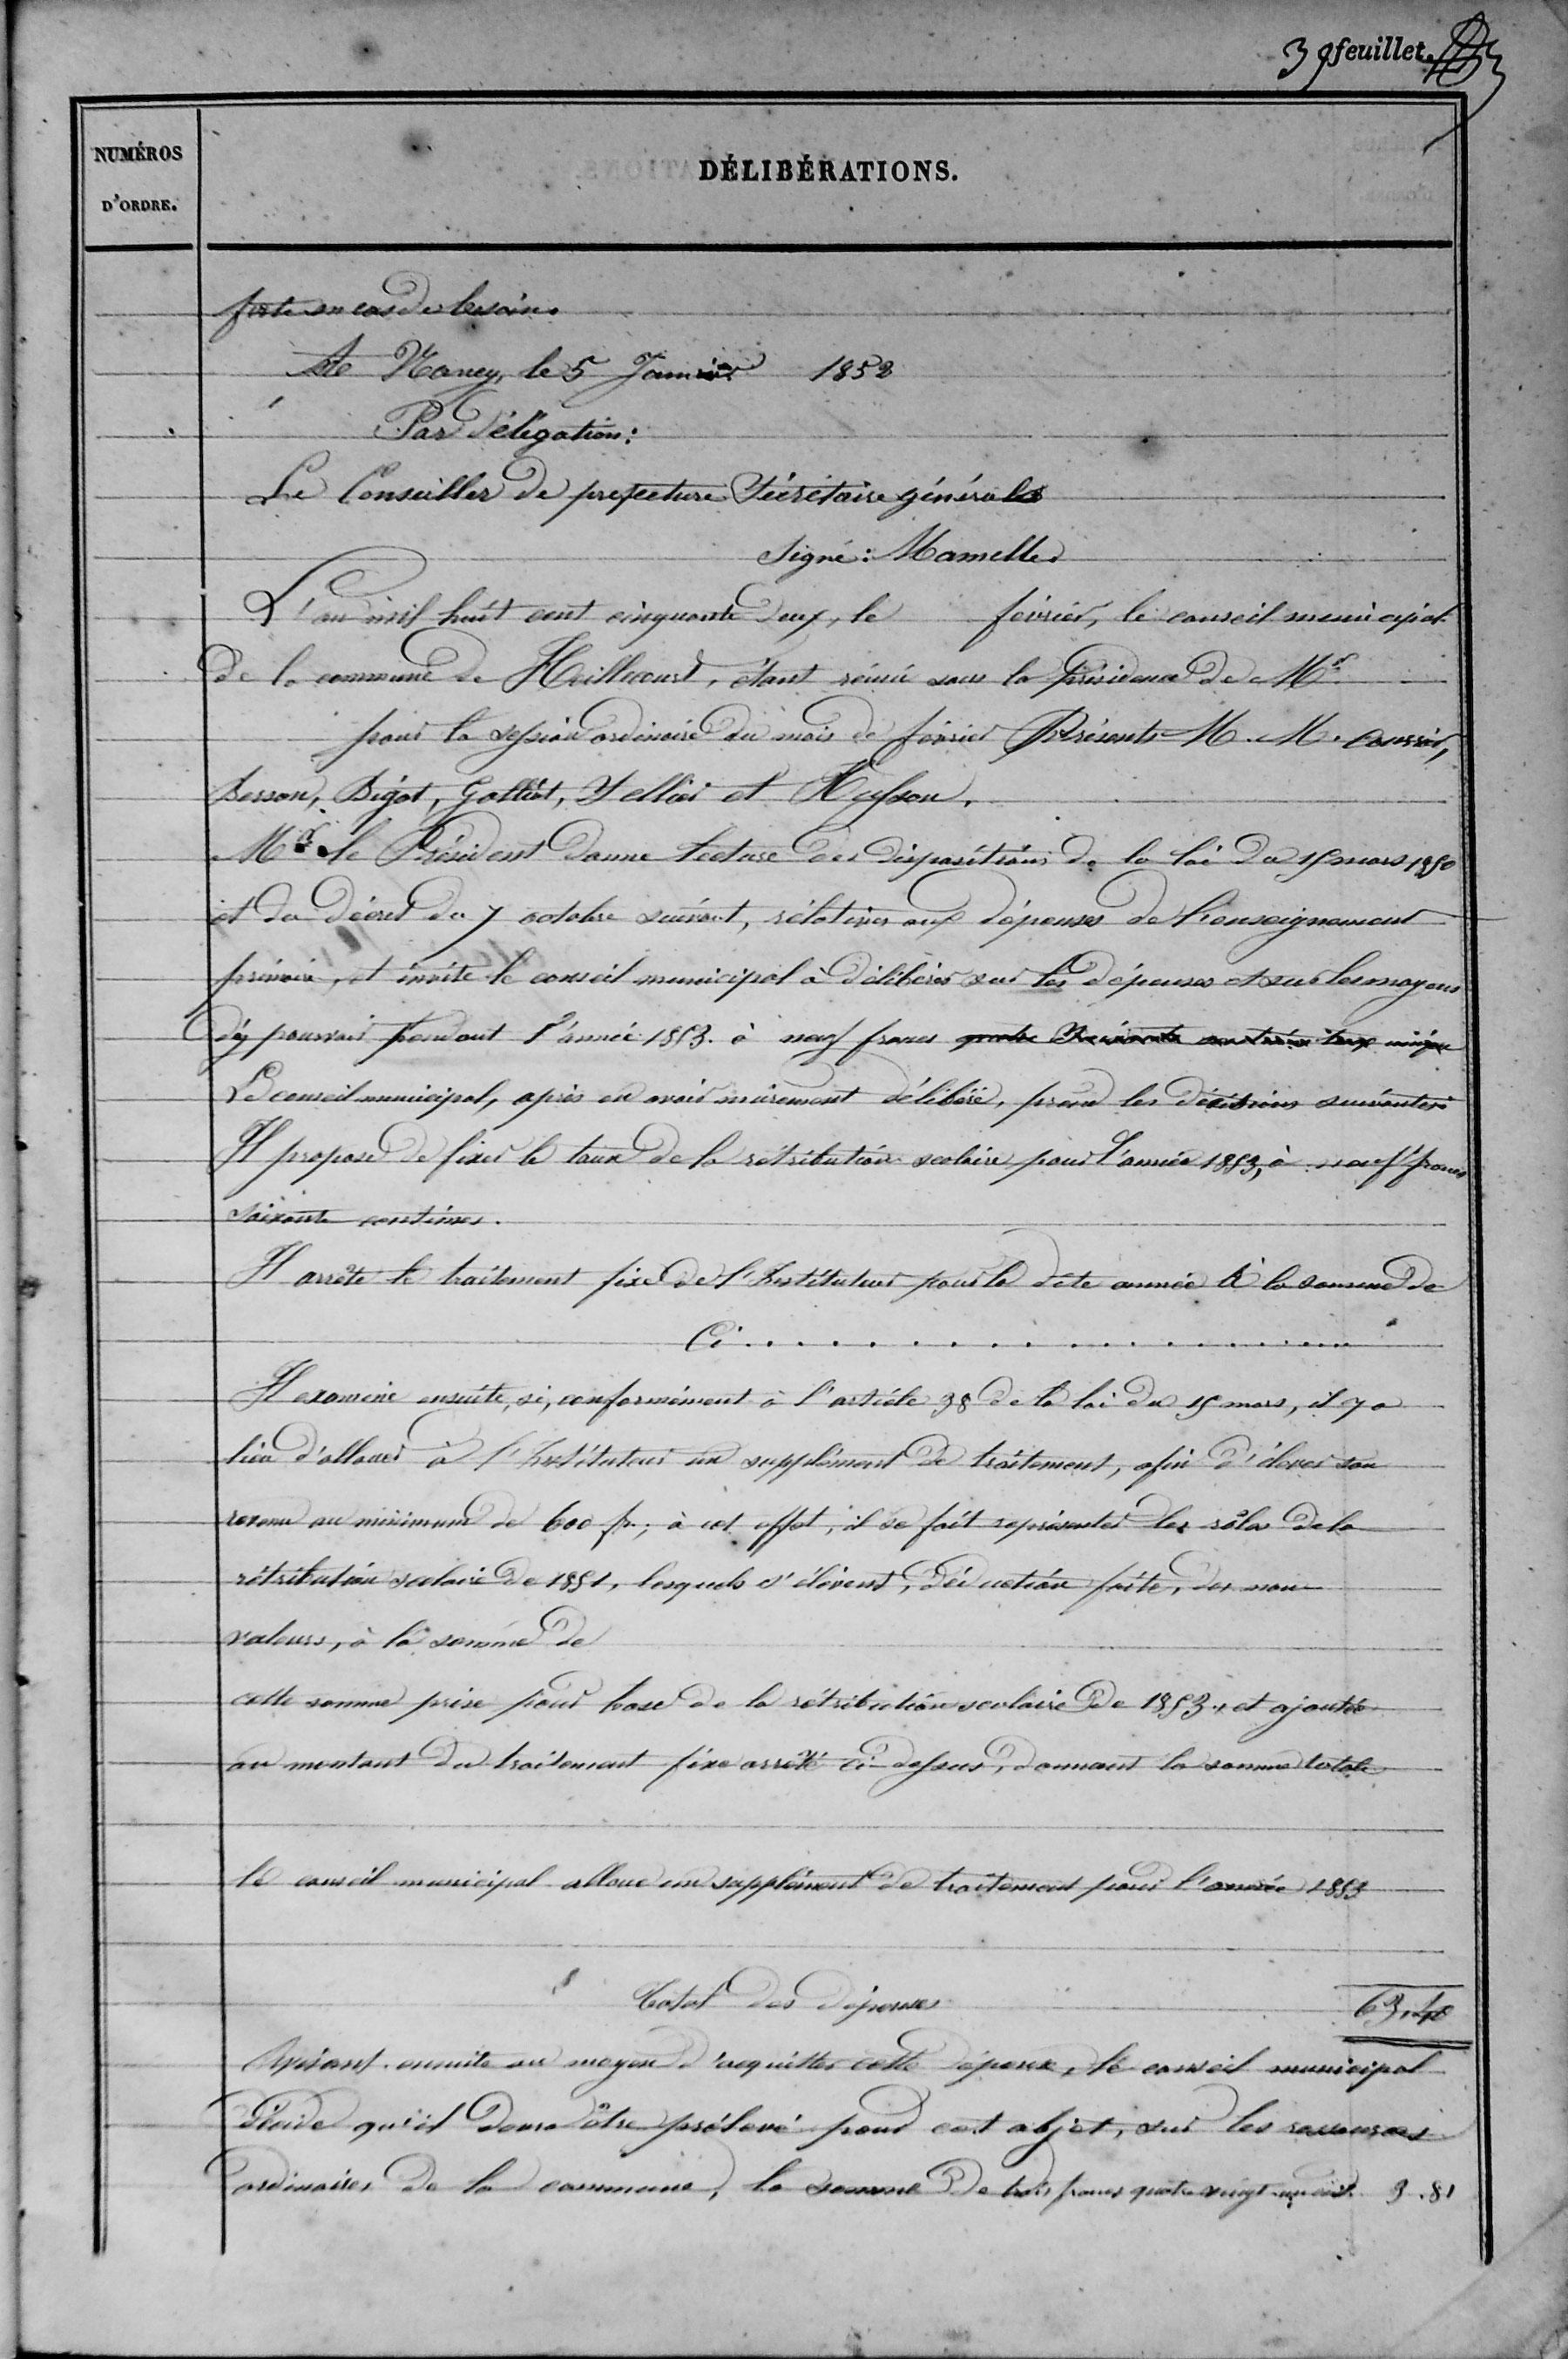 39 feuillet.
NUMÉROS
D'ORDRE.
DÉLIBÉRATIONS.
forte en cas de besoin.
Nancy, le 5 Janvier 1852
Par délégation:
Le Conseiller de prefecture Sécrétaire général
Signé: Mamelle
L'an mil huit cent cinquante deux, le février, le conseil municipal
de la commune de Heillecourt, étant réuni sous la Présidence de Mr
pour la session ordinaire du mois de février Présents M. M.
Besson, Bigot, Galliot, Tellier et Husson.
Mr le Président donne lecture des dispositions de la loi du 15 mars 1850
et du décret du 7 octobre suivant, rélatives aux dépenses de l'enseignement
primaire, et invite le conseil municipal à délibérer sur les dépenses et sur les moyens
d'y pourvoir pendant l'année 1853. à neuf francs
Le conseil municipal, après en avoir mûrement délibéré, prend les décisions suivantes
Il propose de fixer le taux de la rétribution scolaire pour l'année 1853, à neuf francs
soixante centimes.
Il arrête le traitement fixe de l'Instituteur pour la dite année à la somme de
Ci . . . . . . . . . . . . . . . . . .
Il examine ensuite, si, conformément à l'article 38 de la loi du 15 mars, il y a
lieu d'allouer à l'Instituteur un supplément de traitement, afin d'élever son
revenu au minimum de 600 fr.; à cet effet, il se fait représenter les rôles de la
rétribution scolaire de 1851, lesquels s'élèvent, déduction faite, des non
valeurs, à la somme de
cette somme prise pour base de la rétribution scolaire de 1853, et ajoutée
au montant du traitement fixe arrêté ci-dessus, donnant la somme totale
le conseil municipal alloue un supplément de traitement pour l'année 1853
Total des dépenses 63,40
Avisant ensuite au moyen d'acquitter cette dépense, le conseil municipal
décide qu'il devra être prélevé pour cet objet, sur les ressources
ordinaires de la commune, la somme de trois francs quatre vingt un cent. 3.81